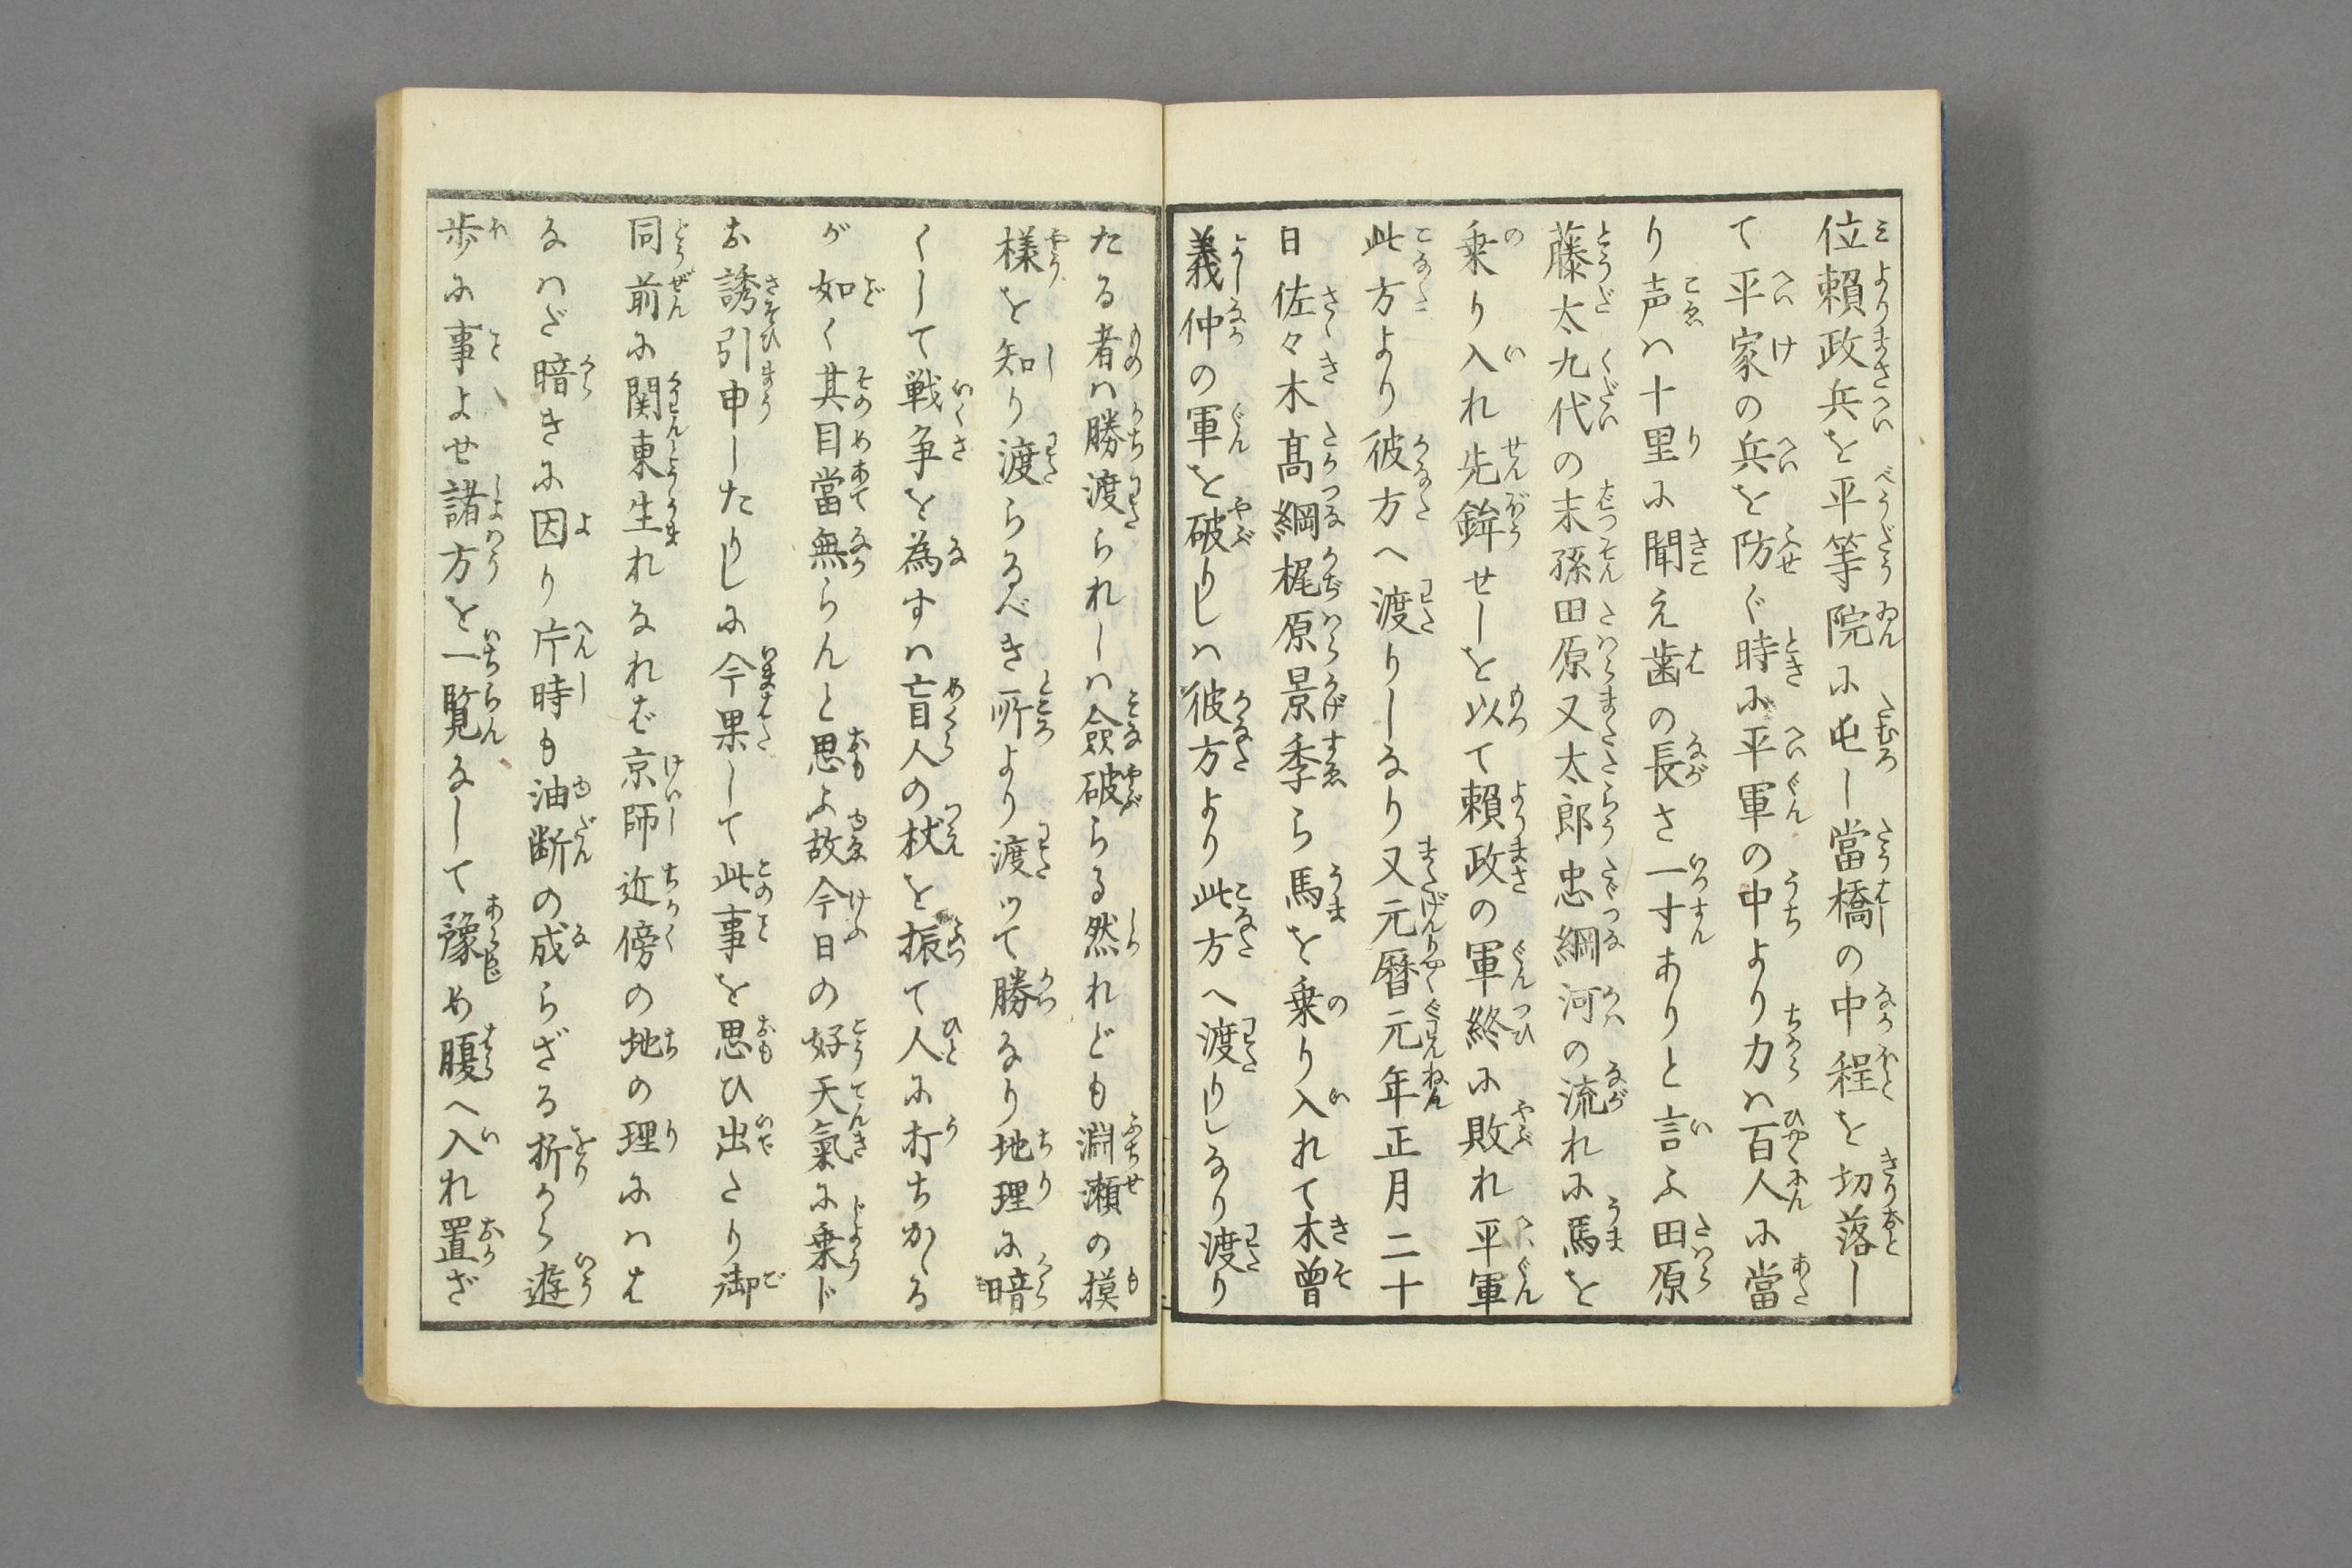 位賴政兵を平等院に屯し當橋の中程を切落し
て平家の兵を防ぐ時に平軍の中より力は百人に當
り声は十里に聞え歯の長さ一寸ありと言ふ田原
藤太九代の末孫田原又太郎忠綱河の流れに馬を
乗り入れ先鉾せしを以て賴政の軍終に敗れ平軍
此方より彼方へ渡りしなり又元暦元年正月二十
日佐々木髙綱梶原景季ら馬を乗り入れて木曽
義仲の軍を破りしは彼方より此方へ渡りしなり渡り
たる者は勝渡られしは僉破らる然れども淵瀬の摸
様を知り渡らるべき所より渡ツて勝なり地理に暗
くして戦争を為すは盲人の杖を振て人に打ちかゝる
が如く其目當無らんと思ふ故今日の好天氣に乗ド
お誘引申したりしに今果して此事を思ひ出たり御
同前に関東生れなれば京師近傍の地の理にはは
なはだ暗きに因り片時も油断の成らざる折から遊
歩に事よせ諸方を一覧なして豫め腹へ入れ置ざ